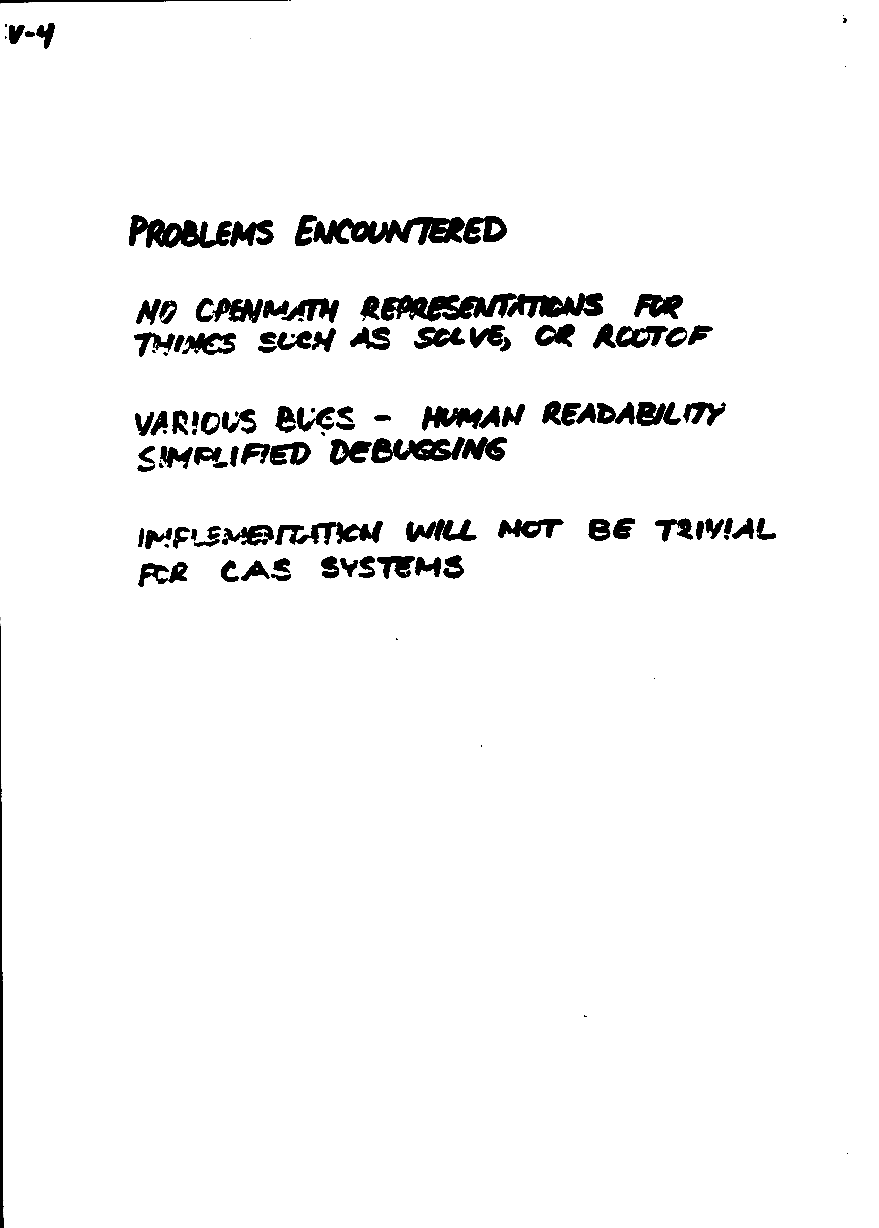 V-4
PROBLEMS ENCOUNTERED
NO OPENMATH REPRESENTATIONS FOR
THINGS SUCH AS SOLVE, OR ROOTOF
VARIOUS BUGS - HUMAN READABILITY
SIMPLIFIED DEBUGGING
IMPLEMENTATION WILL NOT BE TRIVIAL
FOR CAS SYSTEMS